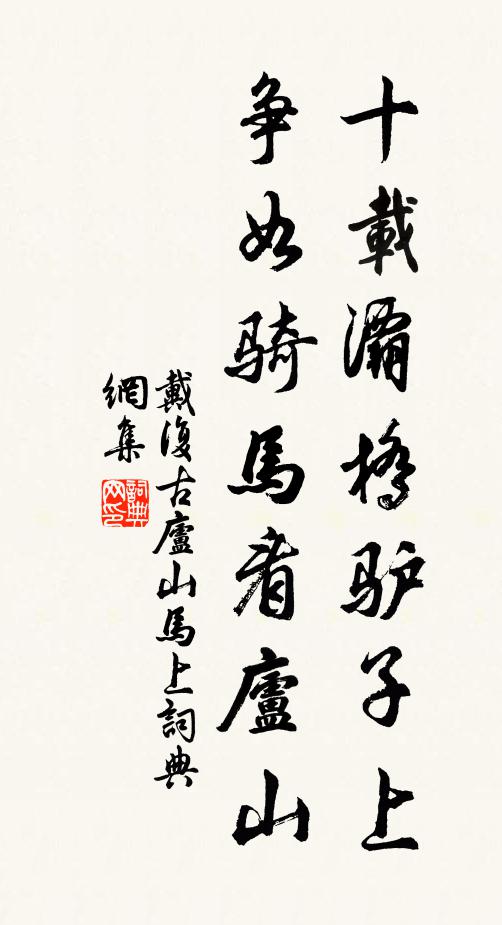 十載灞橋驴子上
争如骑馬看廬山
戴復古廬山馬上詞典
網集
詞典網印